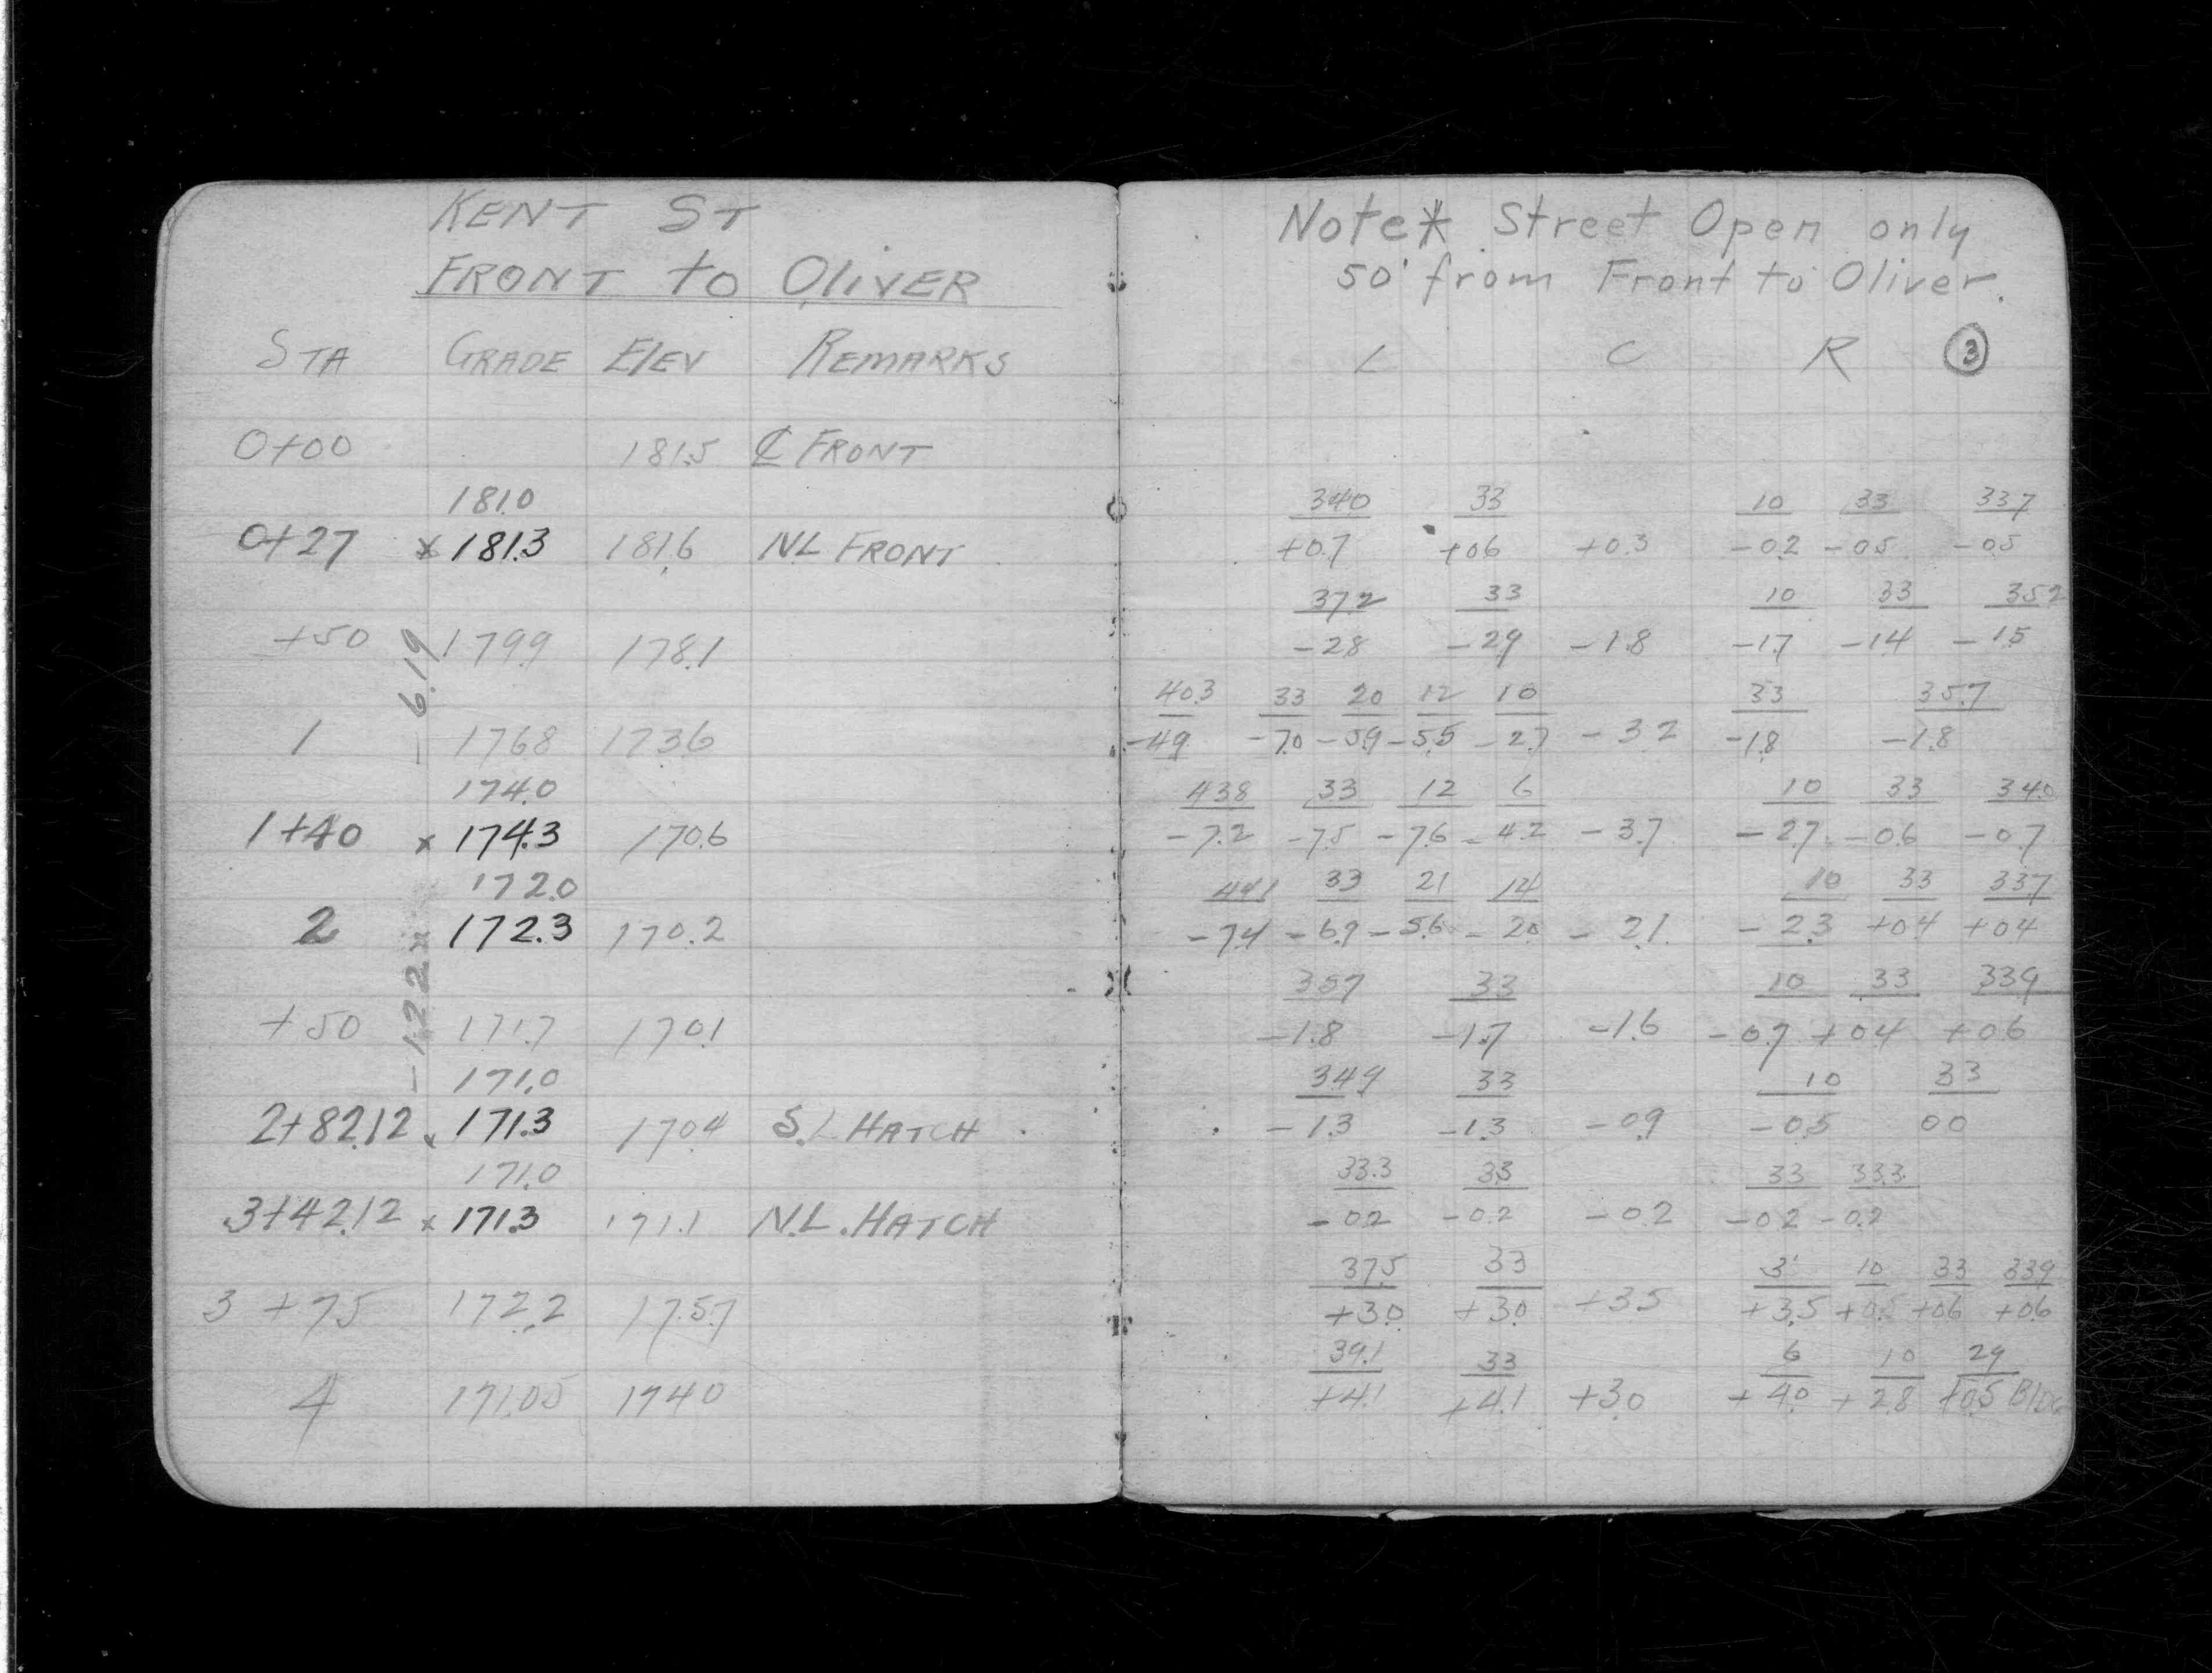 KENT ST
FRONT to OliVER
STA GRADE ElEV REMARKS
0+00 181.5 ℄ FRONT
181.0
0+27 x 181.3 181.6 NL FRONT
+50 179.9 178.1
- 6.19
1 176.8 173.6
174.0
1+40 x 174.3 170.6
172.0
2 172.3 170.2
- 1.22
+50 171.7 170.1
171.0
2+82.12 x 171.3 170.4 S.L HATCH
171.0
3+42.12 x 171.3 171.1 N.L. HATCH
3 +75 172.2 175.7
4 171.05 174.0
Note* Street Open only
50' from Front to Oliver.
L C R 3
34.0 33 10 33 33.7
+0.7 +0.6 +0.3 -0.2 -0.5 -0.5
37.2 33 10 33 35.2
-2.8 -2.9 -1.8 -1.7 -1.4 -1.5
40.3 33 20 12 10 33 35.7
-4.9 -7.0 -5.9 -5.5 -2.7 -3.2 -1.8 -1.8
43.8 33 12 6 10 33 34.0
-7.2 -7.5 -7.6 -4.2 -3.7 -2.7 -0.6 -0.7
44.1 33 21 14 10 33 33.7
-7.4 -6.9 -5.6 -2.0 -2.1 -2.3 +0.4 +0.4
35.7 33 10 33 33.9
-1.8 -1.7 -1.6 -0.7 +0.4 +0.6
34.9 33 10 33
-1.3 -1.3 -0.9 -0.5 0.0
33.3 33 33 33.3
-0.2 -0.2 -0.2 -0.2 -0.2
37.5 33 3' 10 33 33.9
+3.0 +3.0 +3.5 +3.5 +0.5 +0.6 +0.6
39.1 33 6 10 29
+4.1 +4.1 +3.0 +4.0 +2.8 +0.5 BlDG